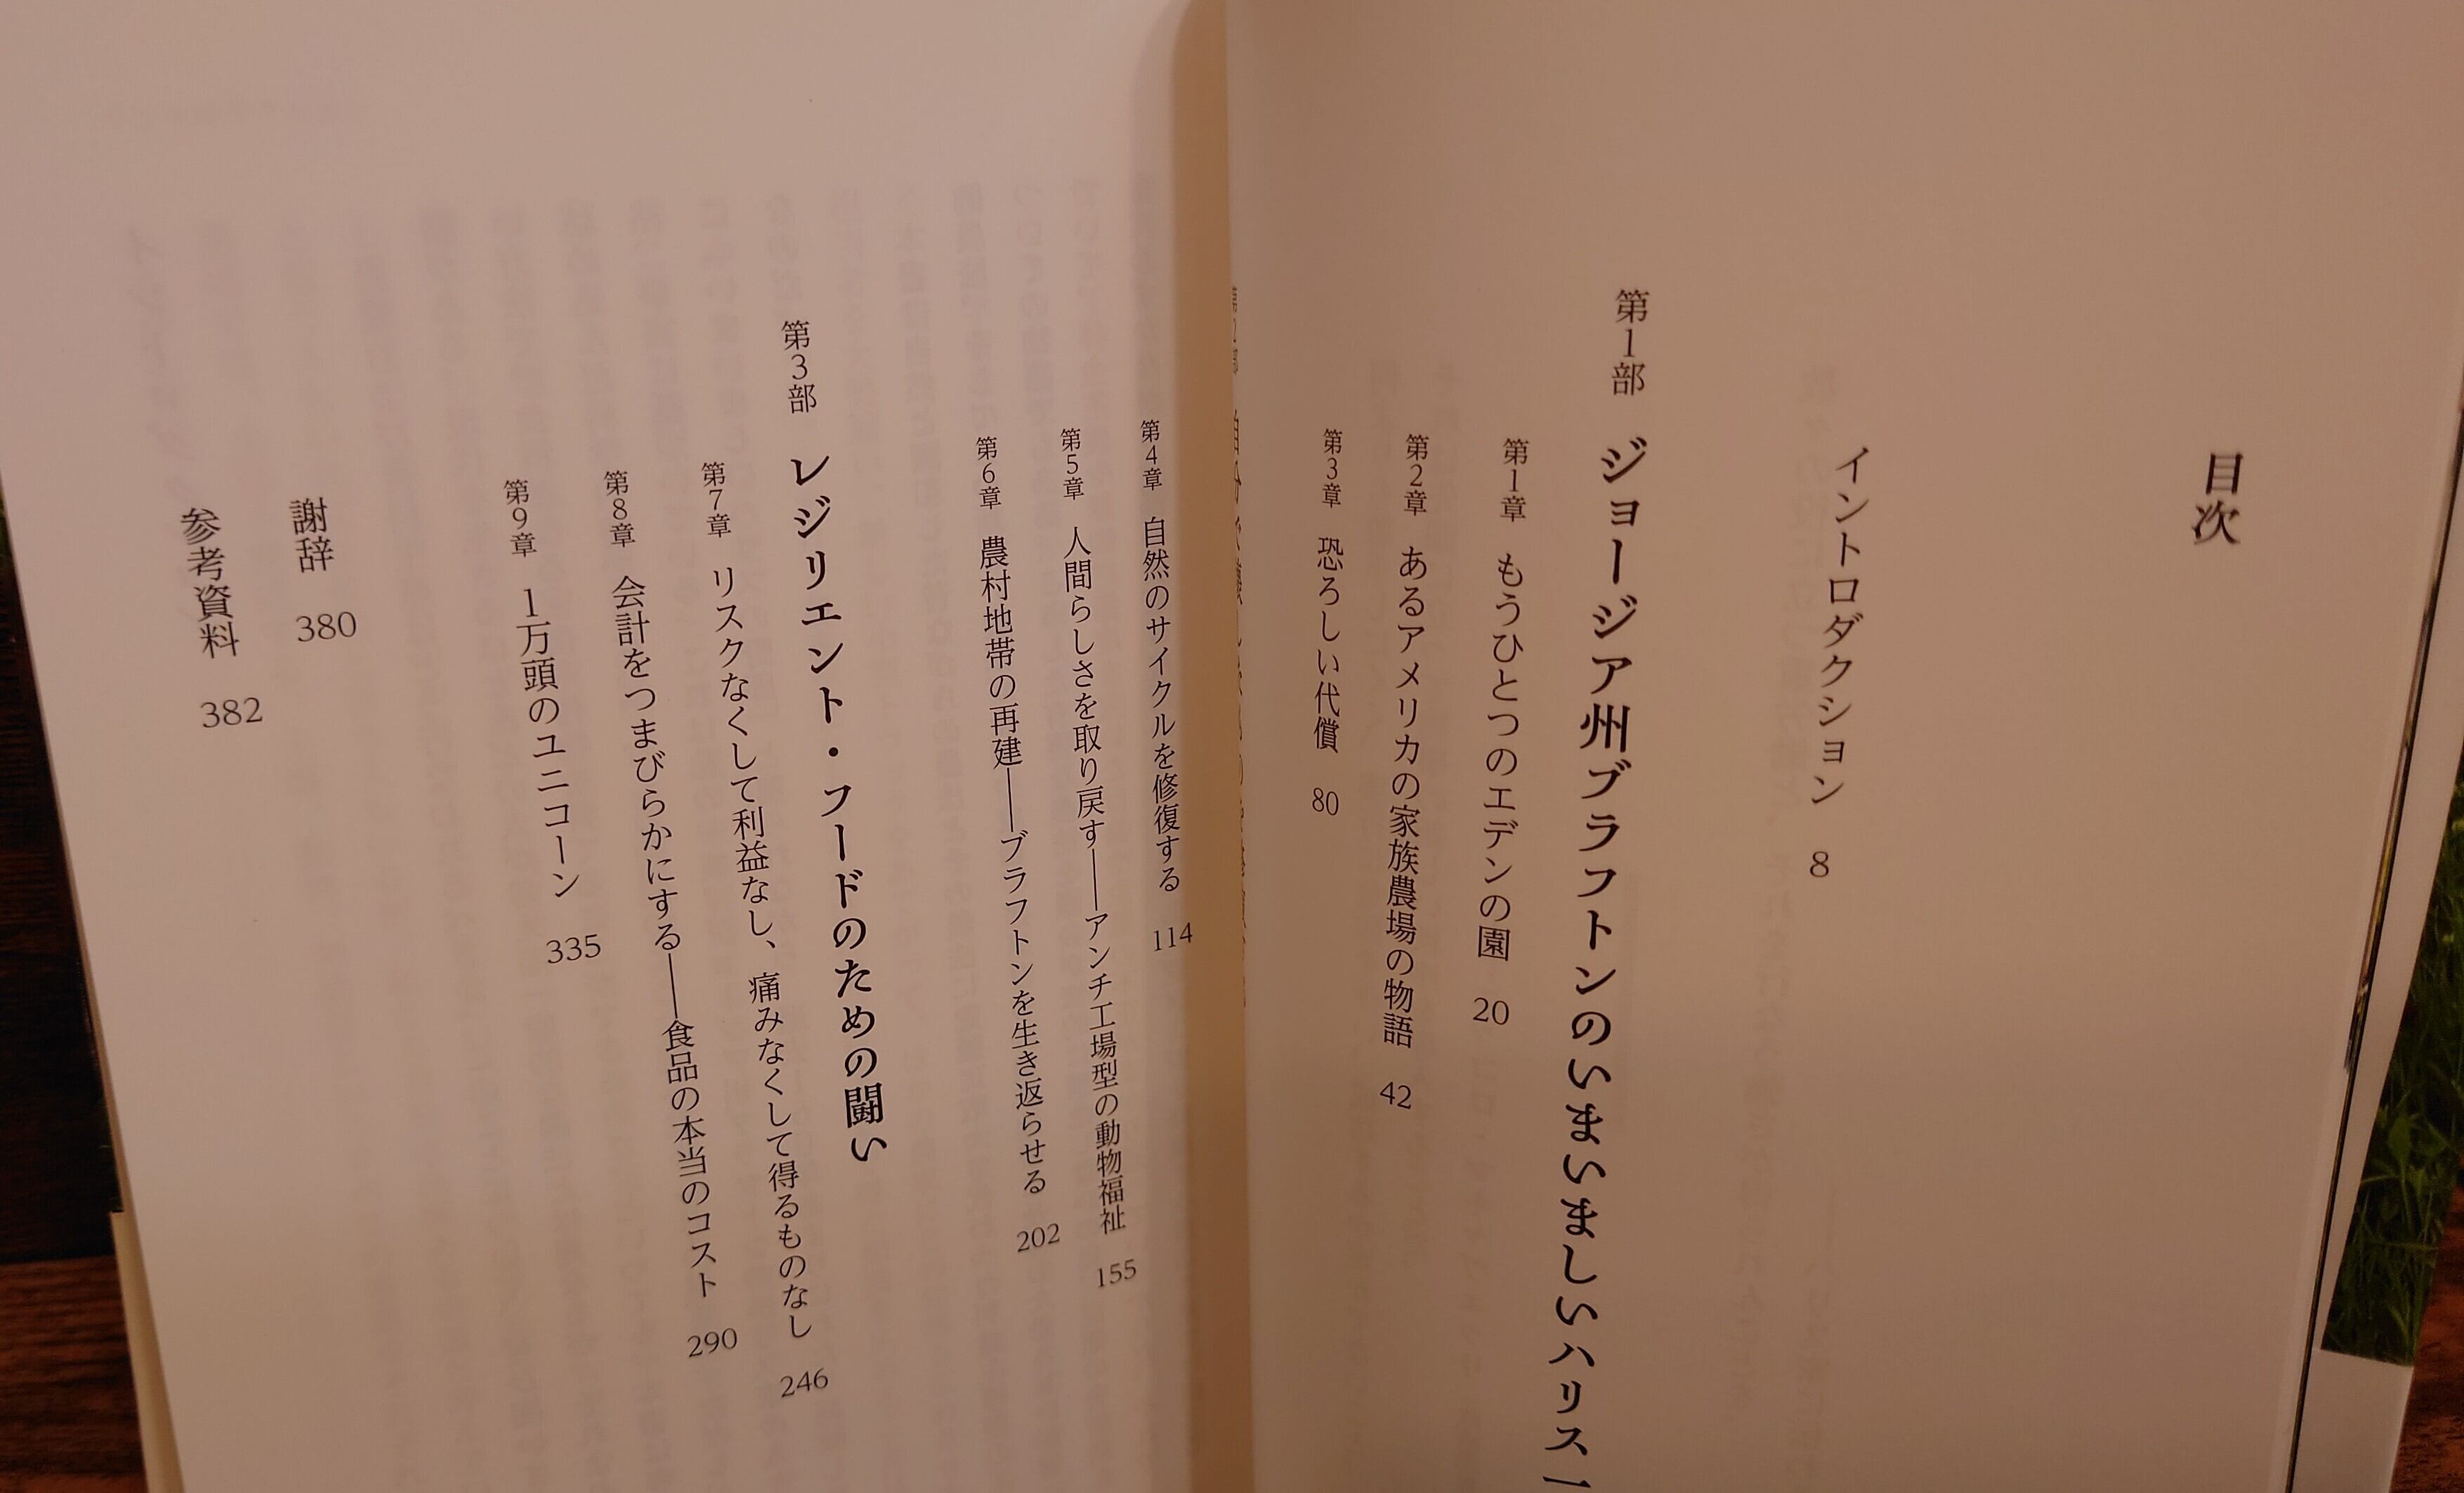 目次
イントロダクション 8
第1部 ジョージア州ブラフトンのいまいましいハリス一
第1章 もうひとつのエデンの園 20
第2章 あるアメリカの家族農場の物語 42
第3章 恐ろしい代償 80
第2部 自分で壊
第4章 自然のサイクルを修復する 114
第5章 人間らしさを取り戻す――アンチ工場型の動物福祉 155
第6章 農村地帯の再建――ブラフトンを生き返らせる 202
第3部 レジリエント・フードのための闘い
第7章 リスクなくして利益なし、痛みなくして得るものなし 246
第8章 会計をつまびらかにする――食品の本当のコスト 290
第9章 1万頭のユニコーン 335
謝辞 380
参考資料 382